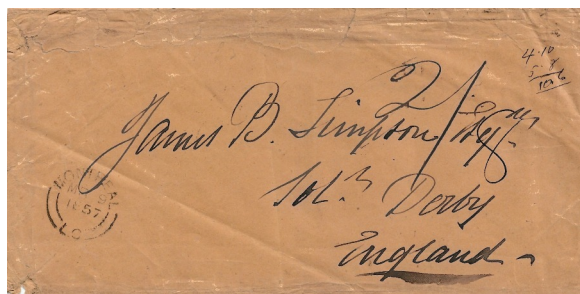 4.10
10.6
2/
James B. Simpson Esqre
Solr Derby
England
MONTREAL
1857
L.C